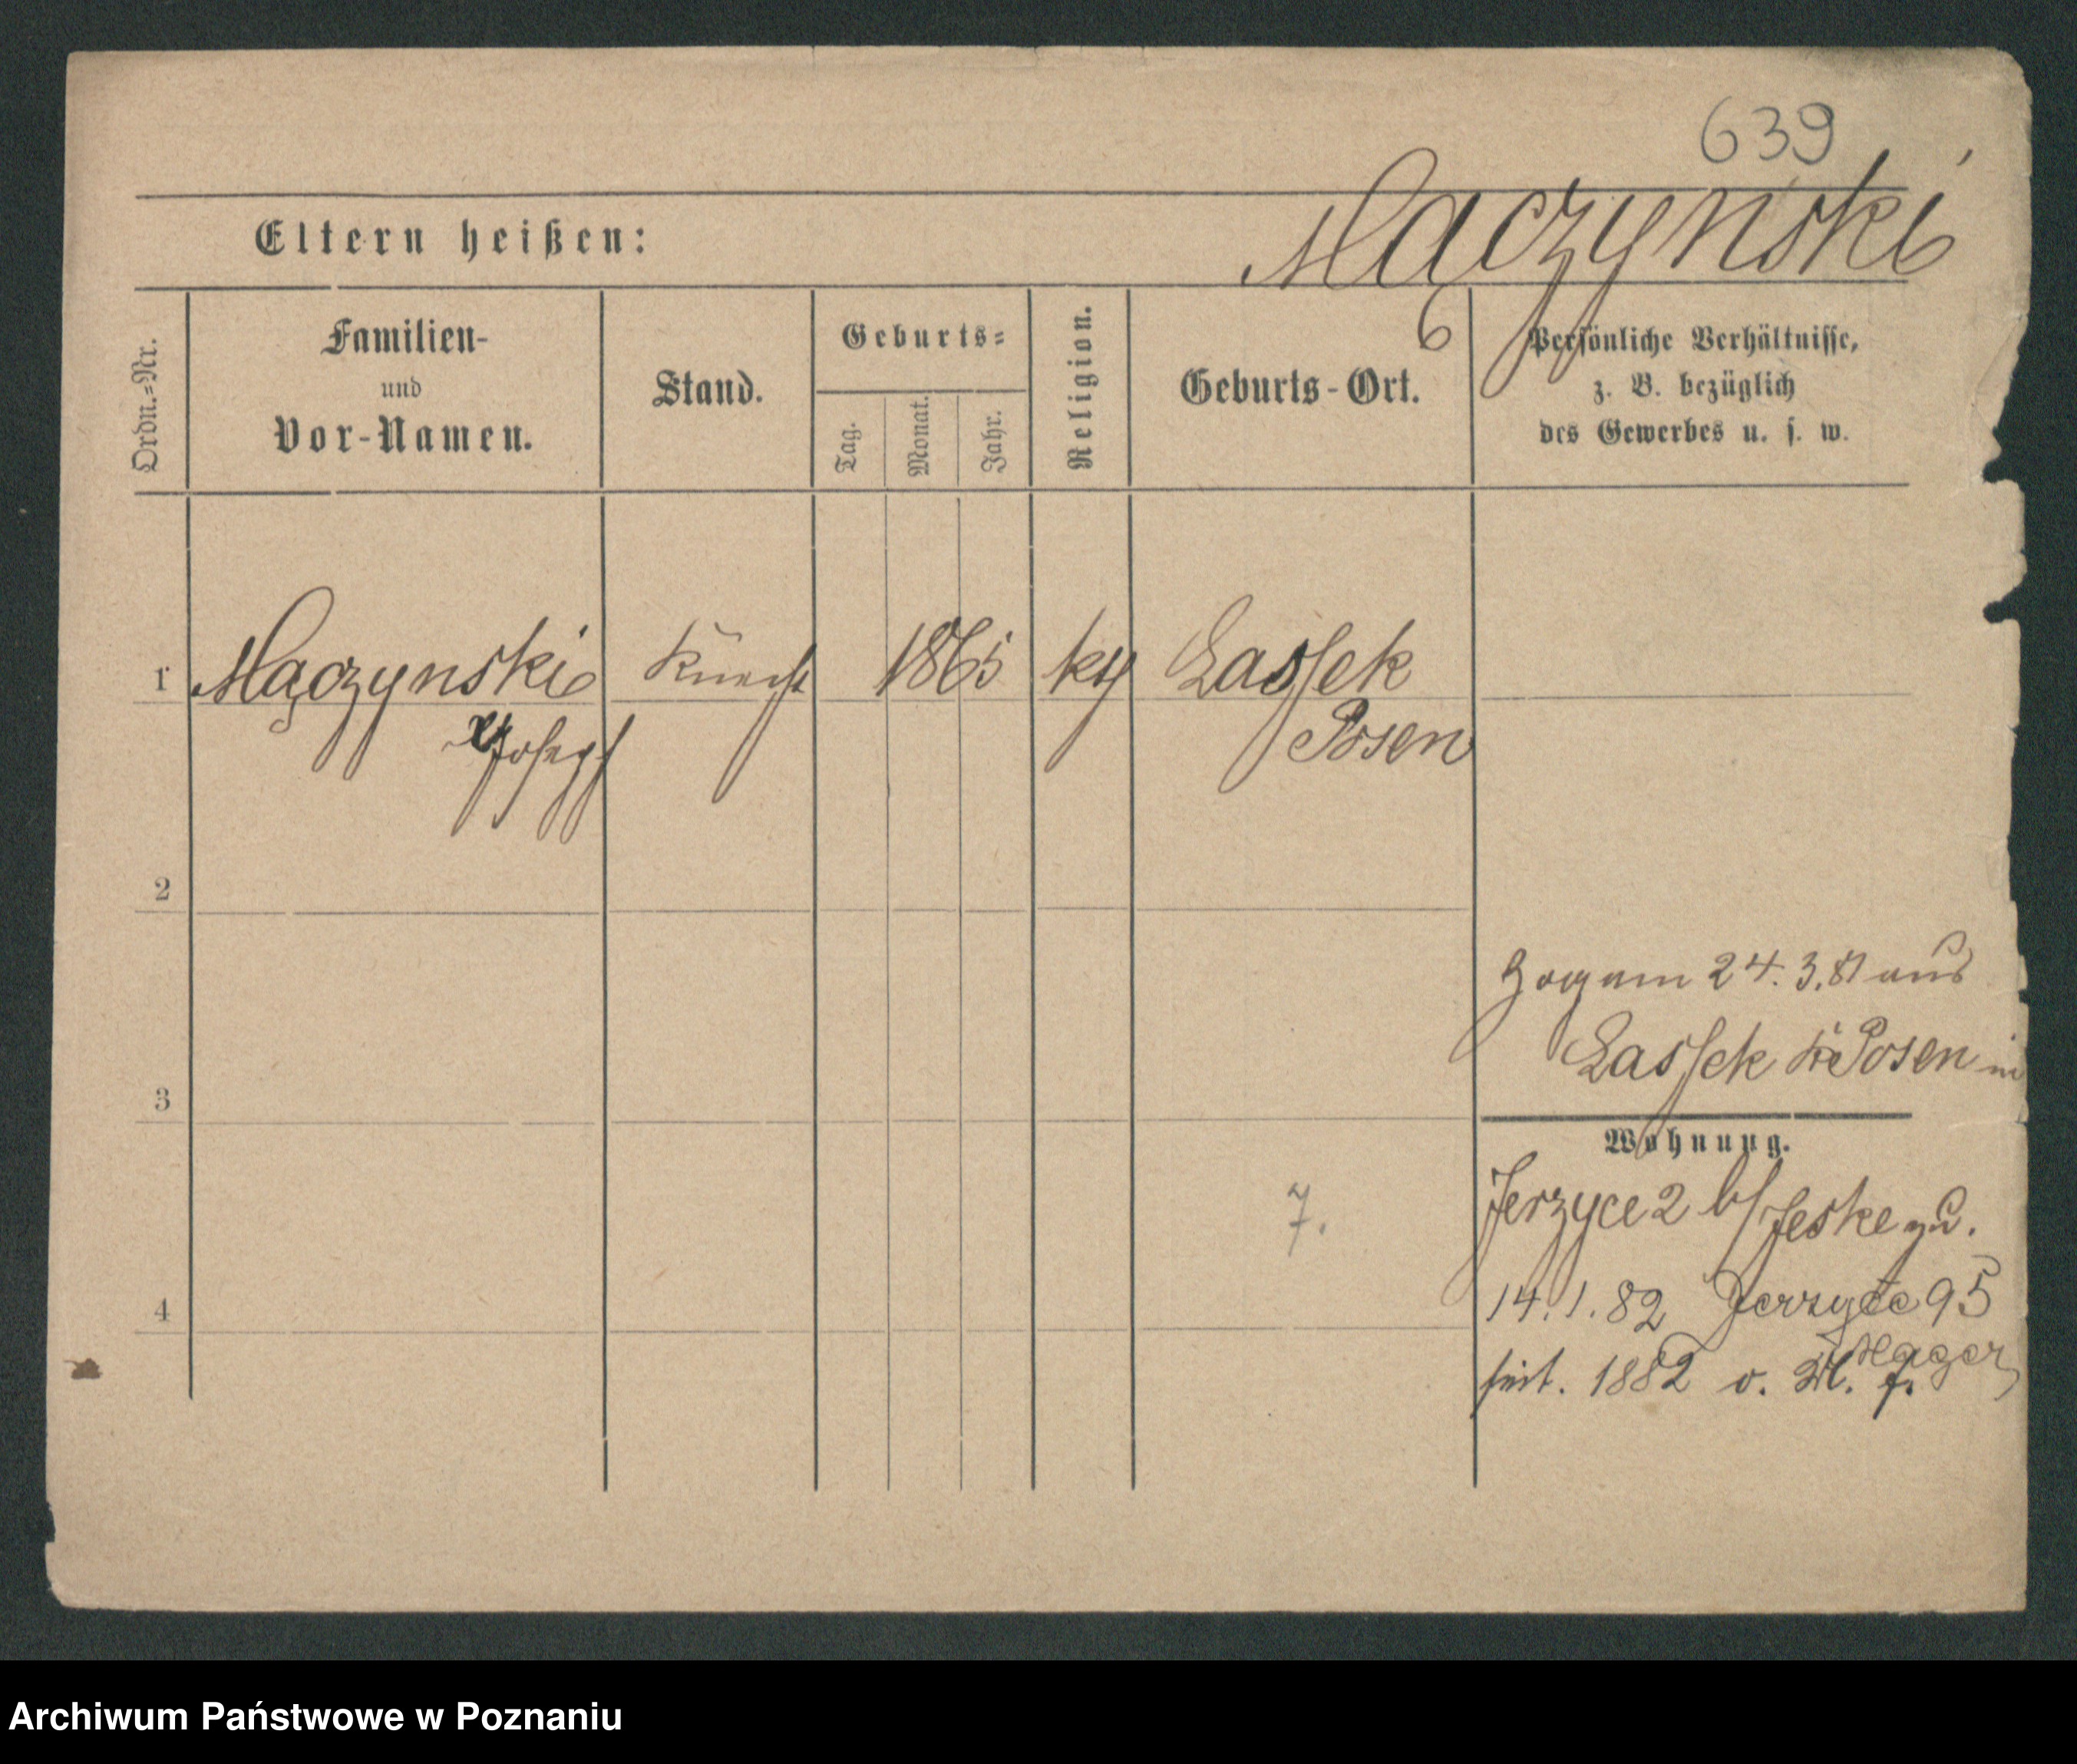 639
Eltern heißen: Mączynski
Ordn.=Nr.
Familien-
und
Vor-Namen.
Stand.
Geburts=
Tag.
Monat.
Jahr.
Religion.
Geburts-Ort.
Persönliche Verhältnisse,
z. B. bezüglich
des Gewerbes u. s. w.
1 Mączynski Knecht 1865 kth Lassek
Joseph Posen
2
Zog am 24.3.81 aus
Lassek Kr Posen in
3
Wohnung.
7.
Jerzyce 2 b/ Jeske zu.
4
14.1.82 Jerzyce 95
Hager
seit. 1882 v. M. f.
Archiwum Państwowe w Poznaniu